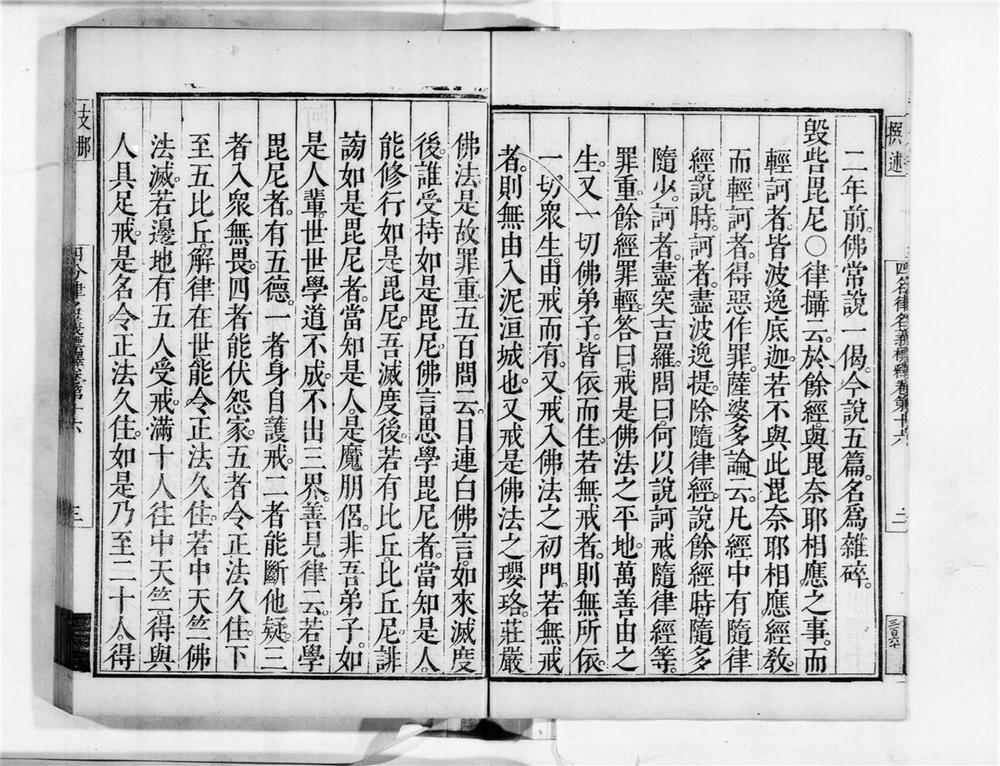 二年前。佛常說一偈。今說五篇。名爲雜碎。
毀呰毘尼〇律攝云。於餘經。與毘奈耶相應之事。而
輕訶者。皆波逸底迦。若不與此毘奈耶相應經教。
而輕訶者。得惡作罪。薩婆多論云。凡經中有隨律
經說時。訶者。盡波逸提。除隨律經。說餘經時。隨多
隨少。訶者。盡突吉羅。問曰。何以說訶戒隨律經等。
罪重。餘經罪輕。答曰。戒是佛法之平地。萬善由之
生。又一切佛弟子。皆依而住。若無戒者。則無所依。
一切衆生。由戒而有。又戒入佛法之初門。若無戒
者。則無由入泥洹城也。又戒是佛法之瓔珞。莊嚴
佛法。是故罪重。五百問云。目連白佛言。如來滅度
後。誰受持如是毘尼。佛言。思學毘尼者。當知是人。
能修行如是毘尼。吾滅度後。若有比丘。比丘尼。誹
謗如是毘尼者。當知是人。是魔朋侶。非吾弟子。如
是人輩。世世學道不成。不出三界。善見律云。若學
毘尼者。有五德。一者身自護戒。二者能斷他疑。三
者入衆無畏。四者能伏怨家。五者令正法久住。下
至五比丘。解律在世。能令正法久住。若中天竺佛
法滅。若邊地有五人受戒。滿十人往中天竺。得與
人具足戒。是名令正法久住。如是乃至二十人。得
四分律名義標釋卷第十六
三
支那